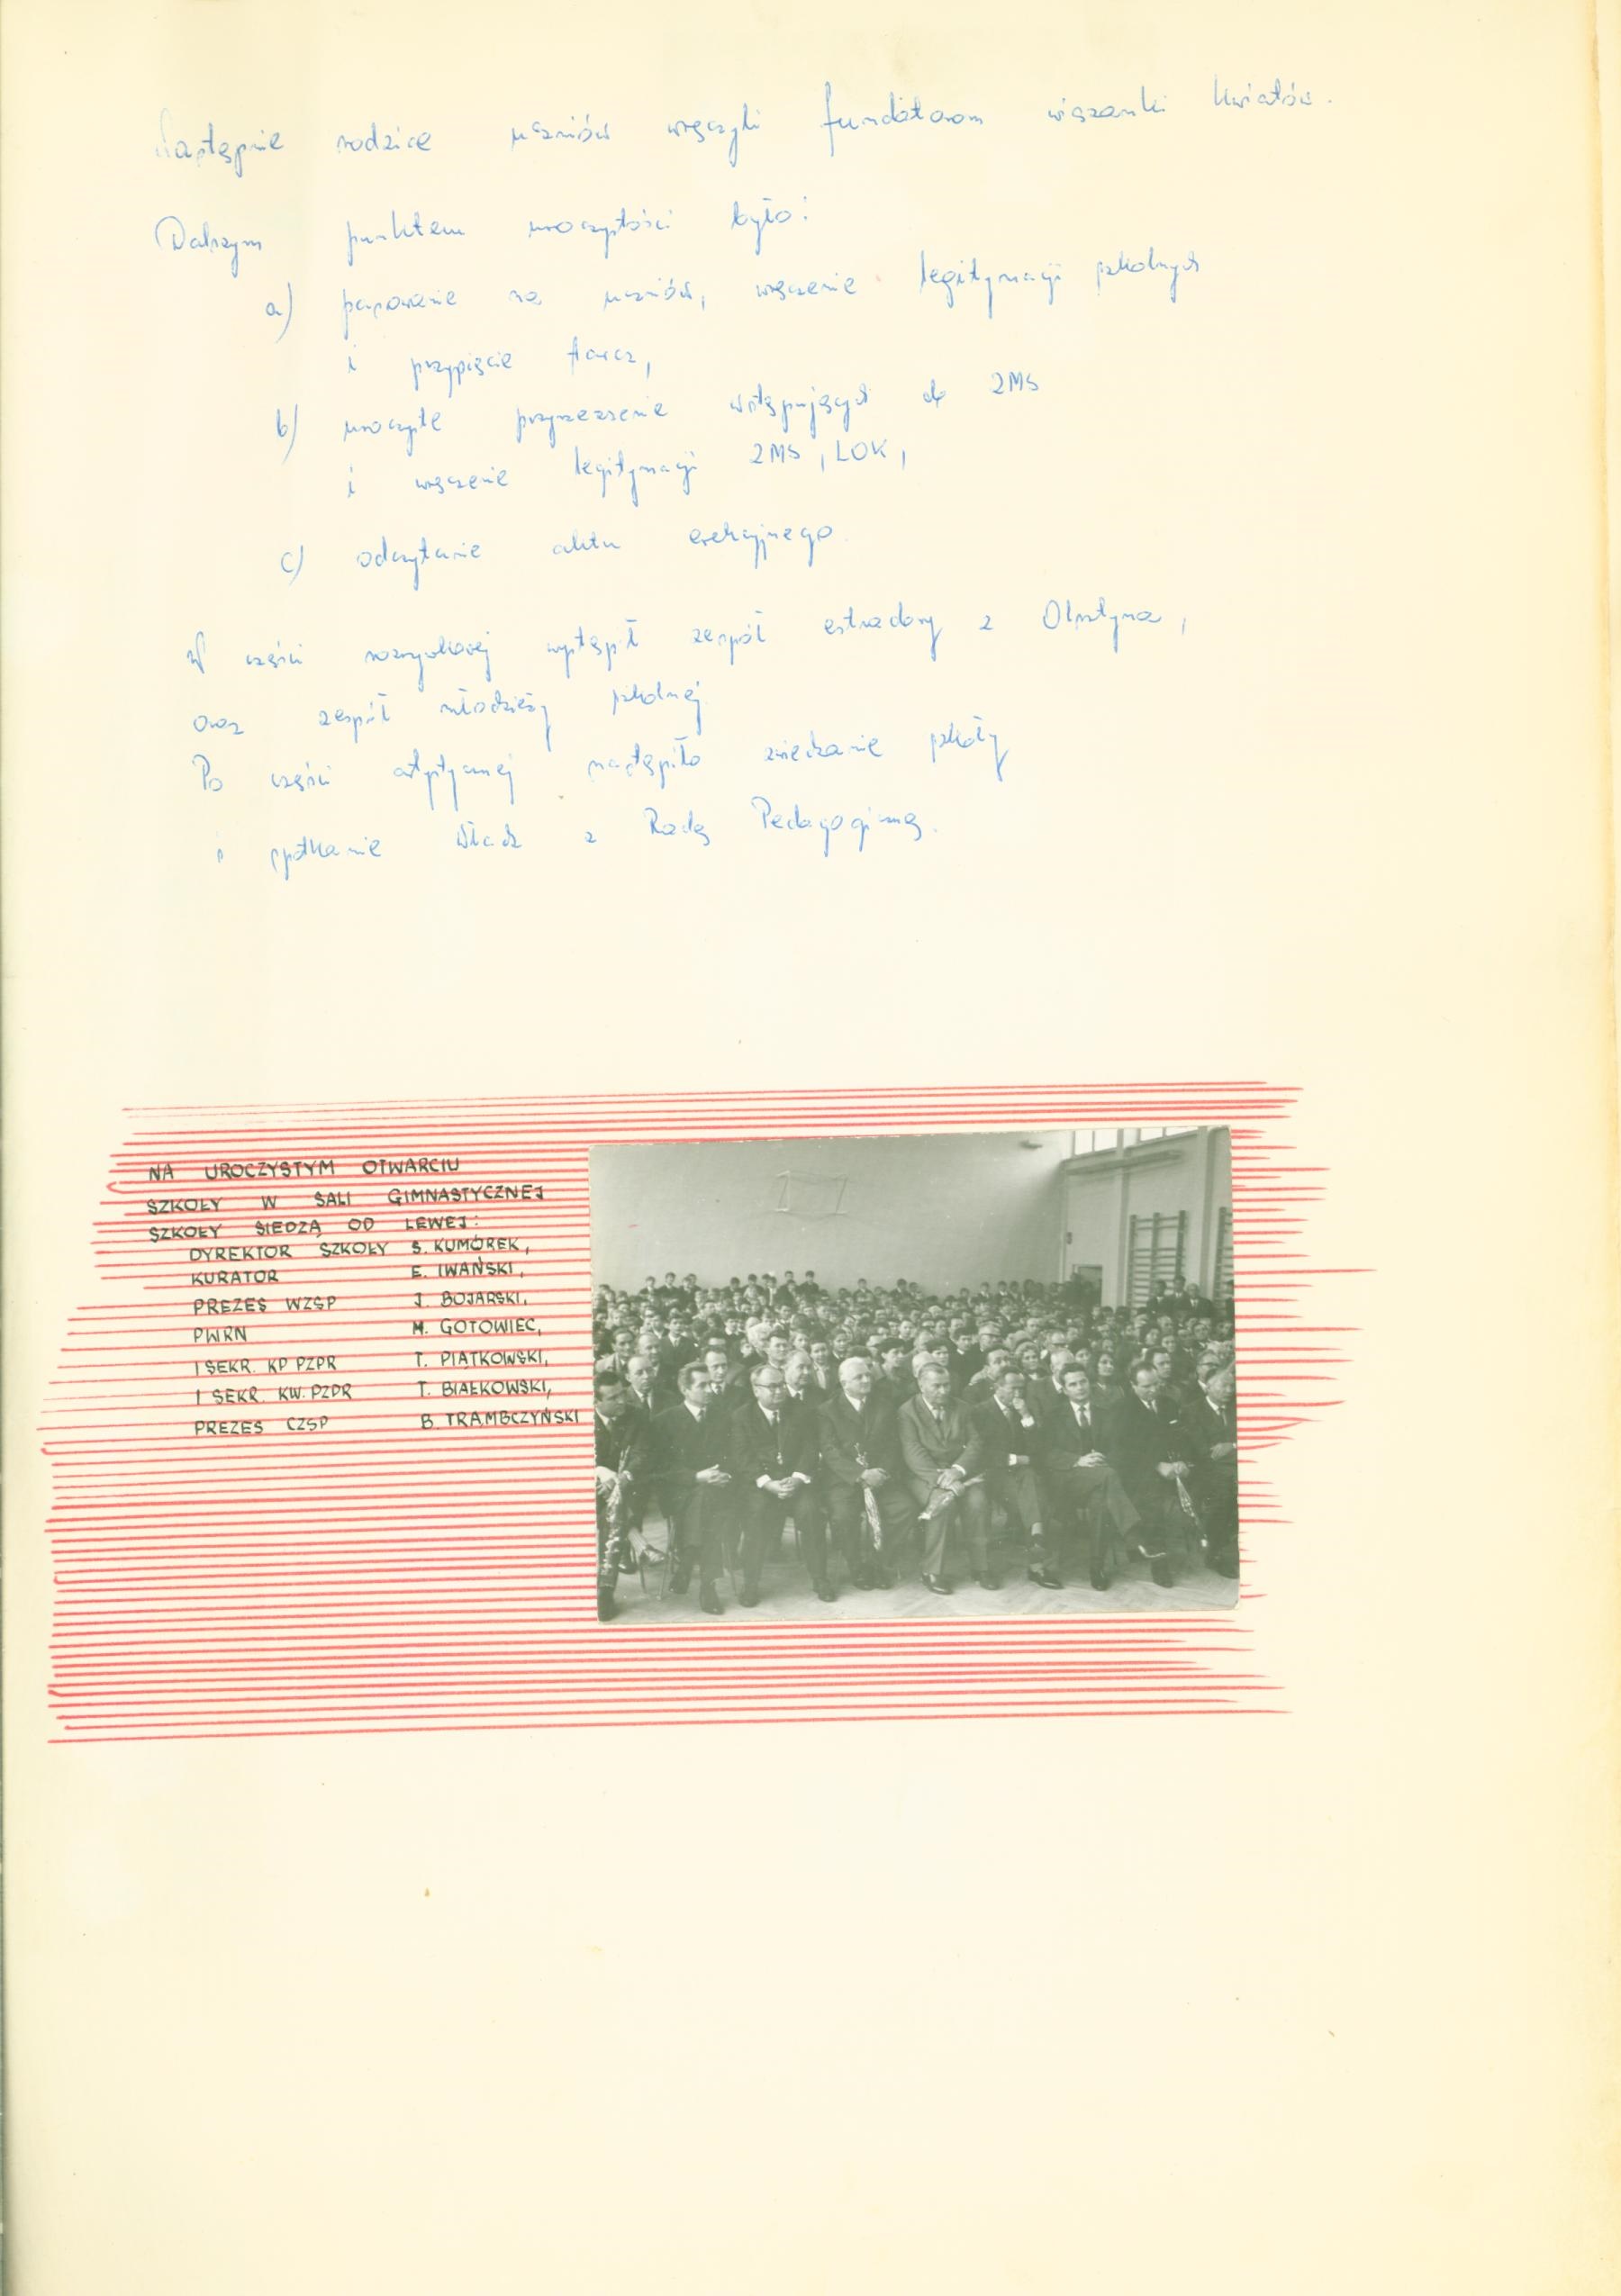 Następnie rodzice uczniów wręczyli fundatorom wiązanki kwiatów.
Dalszym punktem uroczystości było:
a) pasowanie na uczniów, wręczenie legitymacji szkolnych
i przypięcie tarcz,
b) uroczyste przyrzeczenie wstępujących do ZMS
i wręczenie legitymacji ZMS, LOK,
c) odczytanie aktu erekcyjnego.
W części rozrywkowej wystąpił zespół estradowy z Olsztyna,
oraz zespół młodzieży szkolnej.
Po części artystycznej nastąpiło zwiedzanie szkoły
i spotkanie Władz z Radą Pedagogiczną.
NA UROCZYSTYM OTWARCIU
SZKOŁY W SALI GIMNASTYCZNEJ
SZKOŁY SIEDZĄ OD LEWEJ:
DYREKTOR SZKOŁY S. KUMÓREK,
KURATOR E. IWAŃSKI,
PREZES WZSP J. BOJARSKI,
PWRN M. GOTOWIEC,
I SEKR. KP PZPR T. PIĄTKOWSKI,
I SEKR. KW. PZPR T. BIAŁKOWSKI,
PREZES CZSP B. TRAMBCZYŃSKI